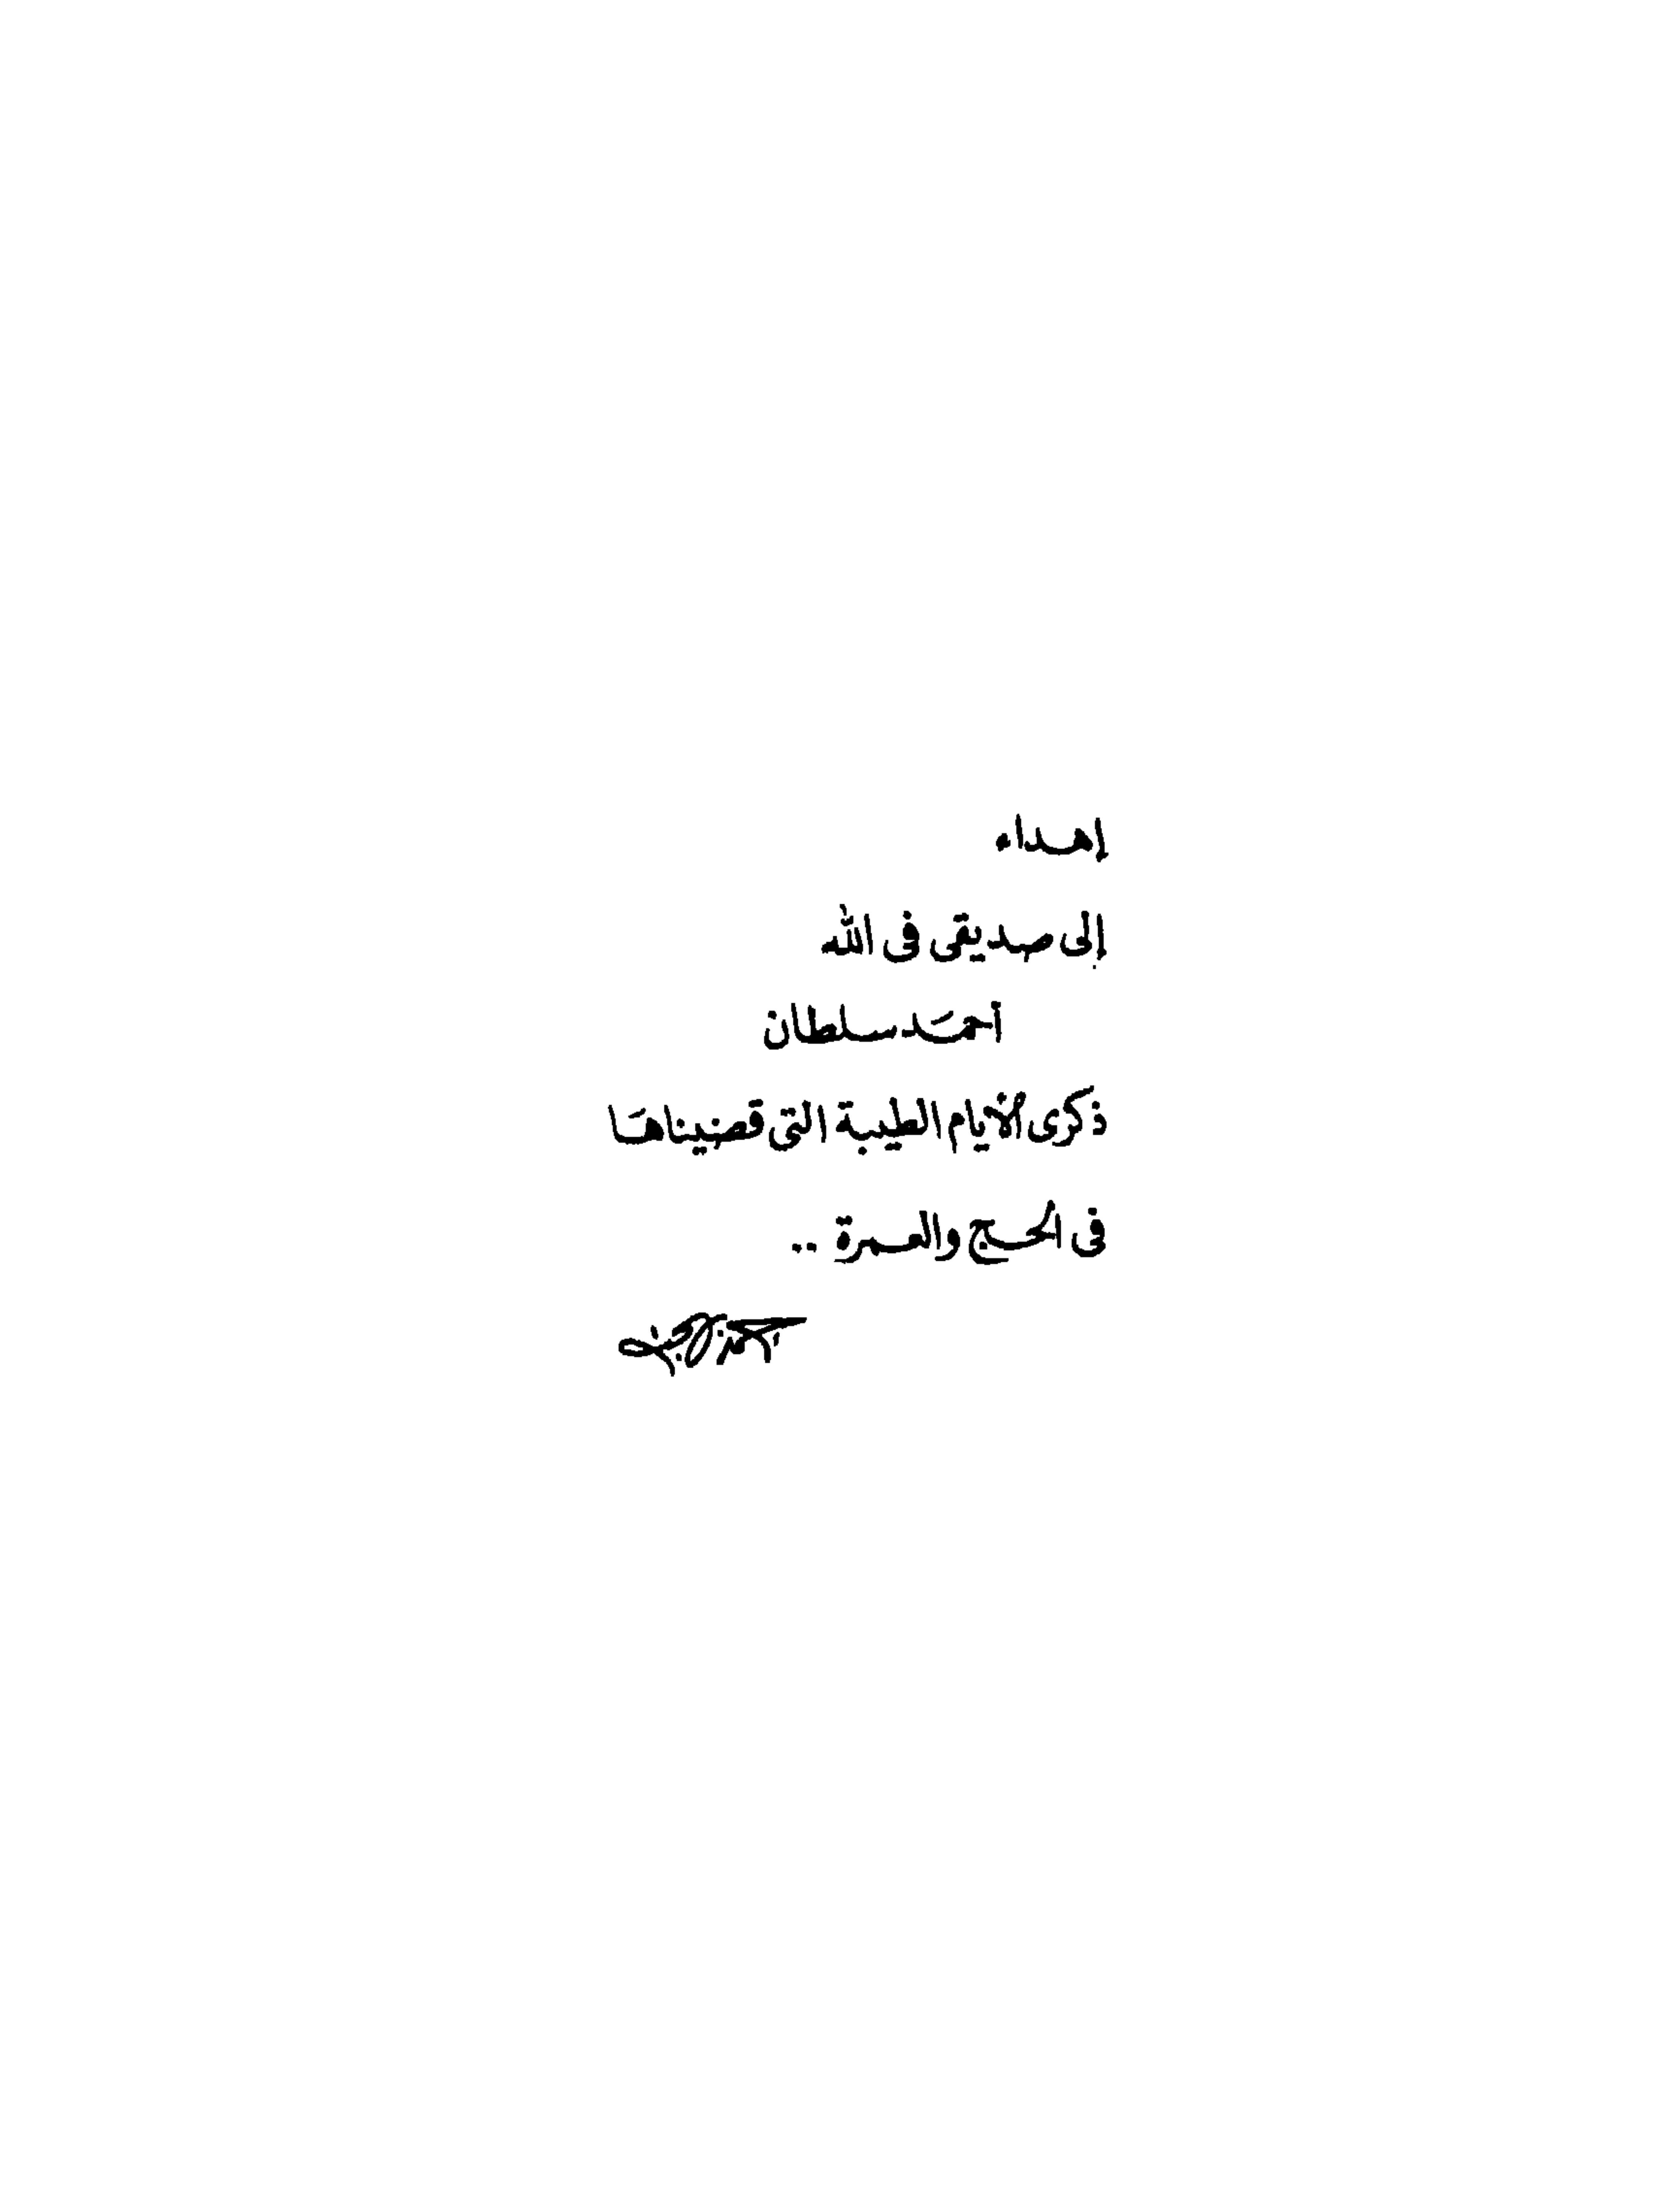 إهداء
إلى صديقى فى الله
أحمد سلطان
ذكرى الأيام الطيبة التى قضيناها
فى الحج والعمرة ..